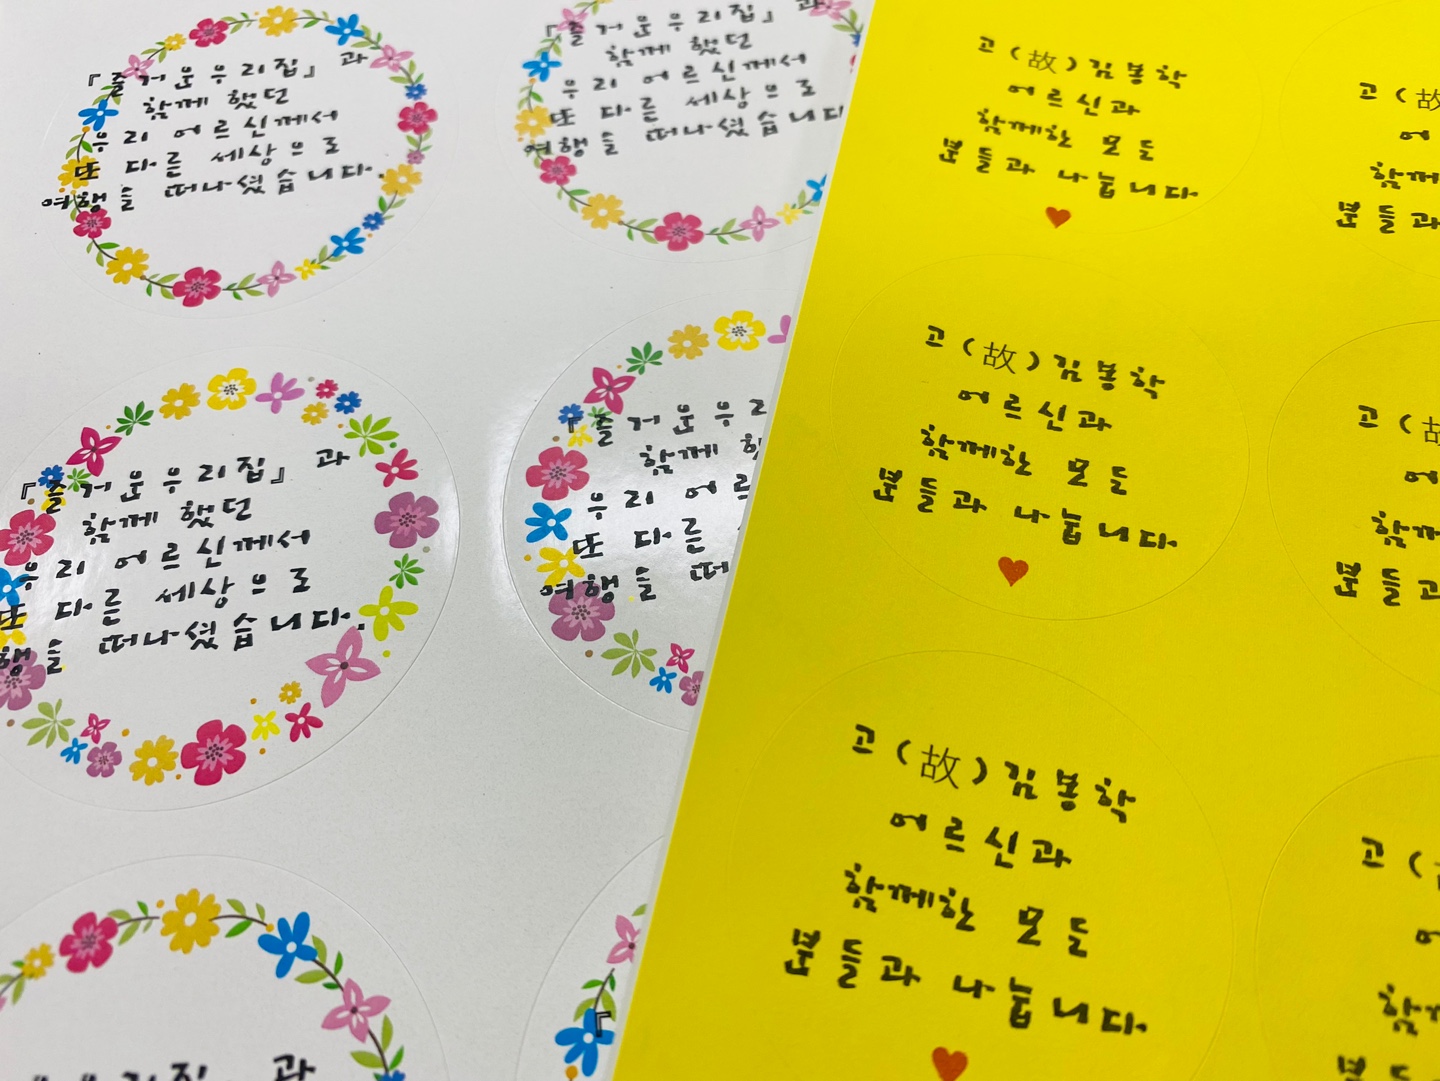 『즐거운우리집』과
함께 했던
우리 어르신께서
또 다른 세상으로
여행을 떠나셨습니다.
『즐거운우리집』과
함께 했던
우리 어르신께서
또 다른 세상으로
여행을 떠나셨습니다
『즐거운우리집』과
함께 했던
우리 어르신께서
또 다른 세상으로
여행을 떠나셨습니다.
『즐거운우
함께
우리 어르
또 다른
여행을 떠
과
『
고(故)김봉학
어르신과
함께한 모든
분들과 나눕니다
고(故)김봉학
어르신과
함께한 모든
분들과 나눕니다
고(故)김봉학
어르신과
함께한 모든
분들과 나눕니다
고(故
어
함께
분들과
고(故
어르
함께
분들과
고(
어
함께
분들